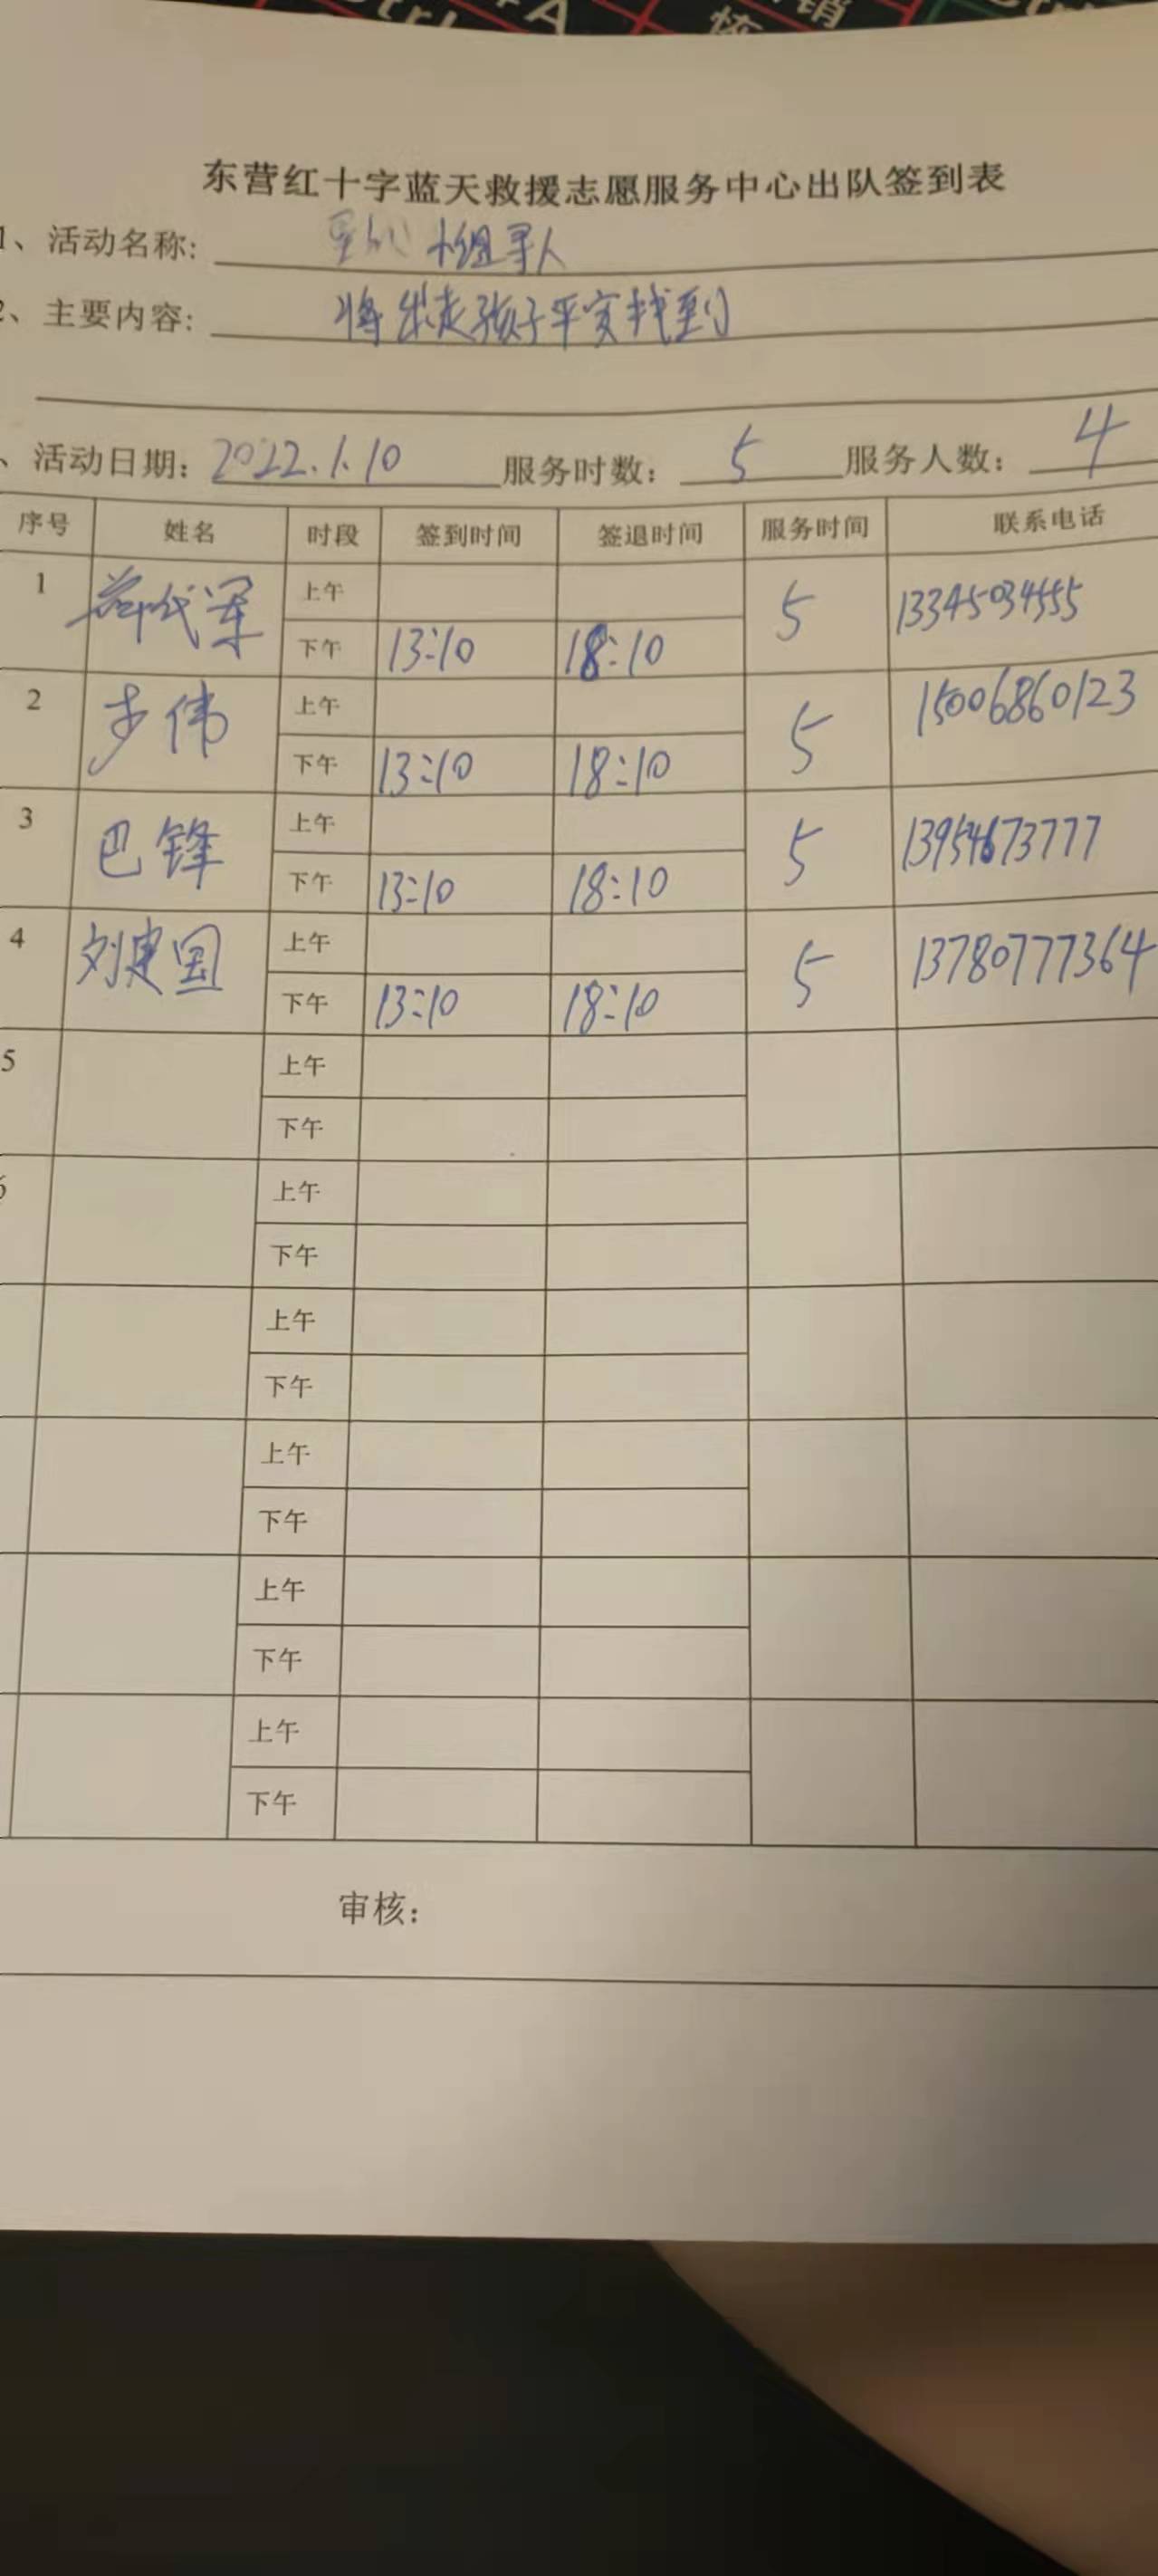 东营红十字蓝天救援志愿服务中心出队签到表
1、活动名称: 小组寻人
2、主要内容: 将出走孩子平安找到
、活动日期: 2022.1.10 服务时数: 5 服务人数: 4
序号 姓名 时段 签到时间 签退时间 服务时间 联系电话
1 代军 上午 5 13345034555
下午 13:10 18:10
2 步伟 上午 5 15006860123
下午 13:10 18:10
3 巴锋 上午 5 13954673777
下午 13:10 18:10
4 刘建国 上午 5 13780777364
下午 13:10 18:10
5 上午
下午
6 上午
下午
上午
下午
上午
下午
上午
下午
上午
下午
审核: